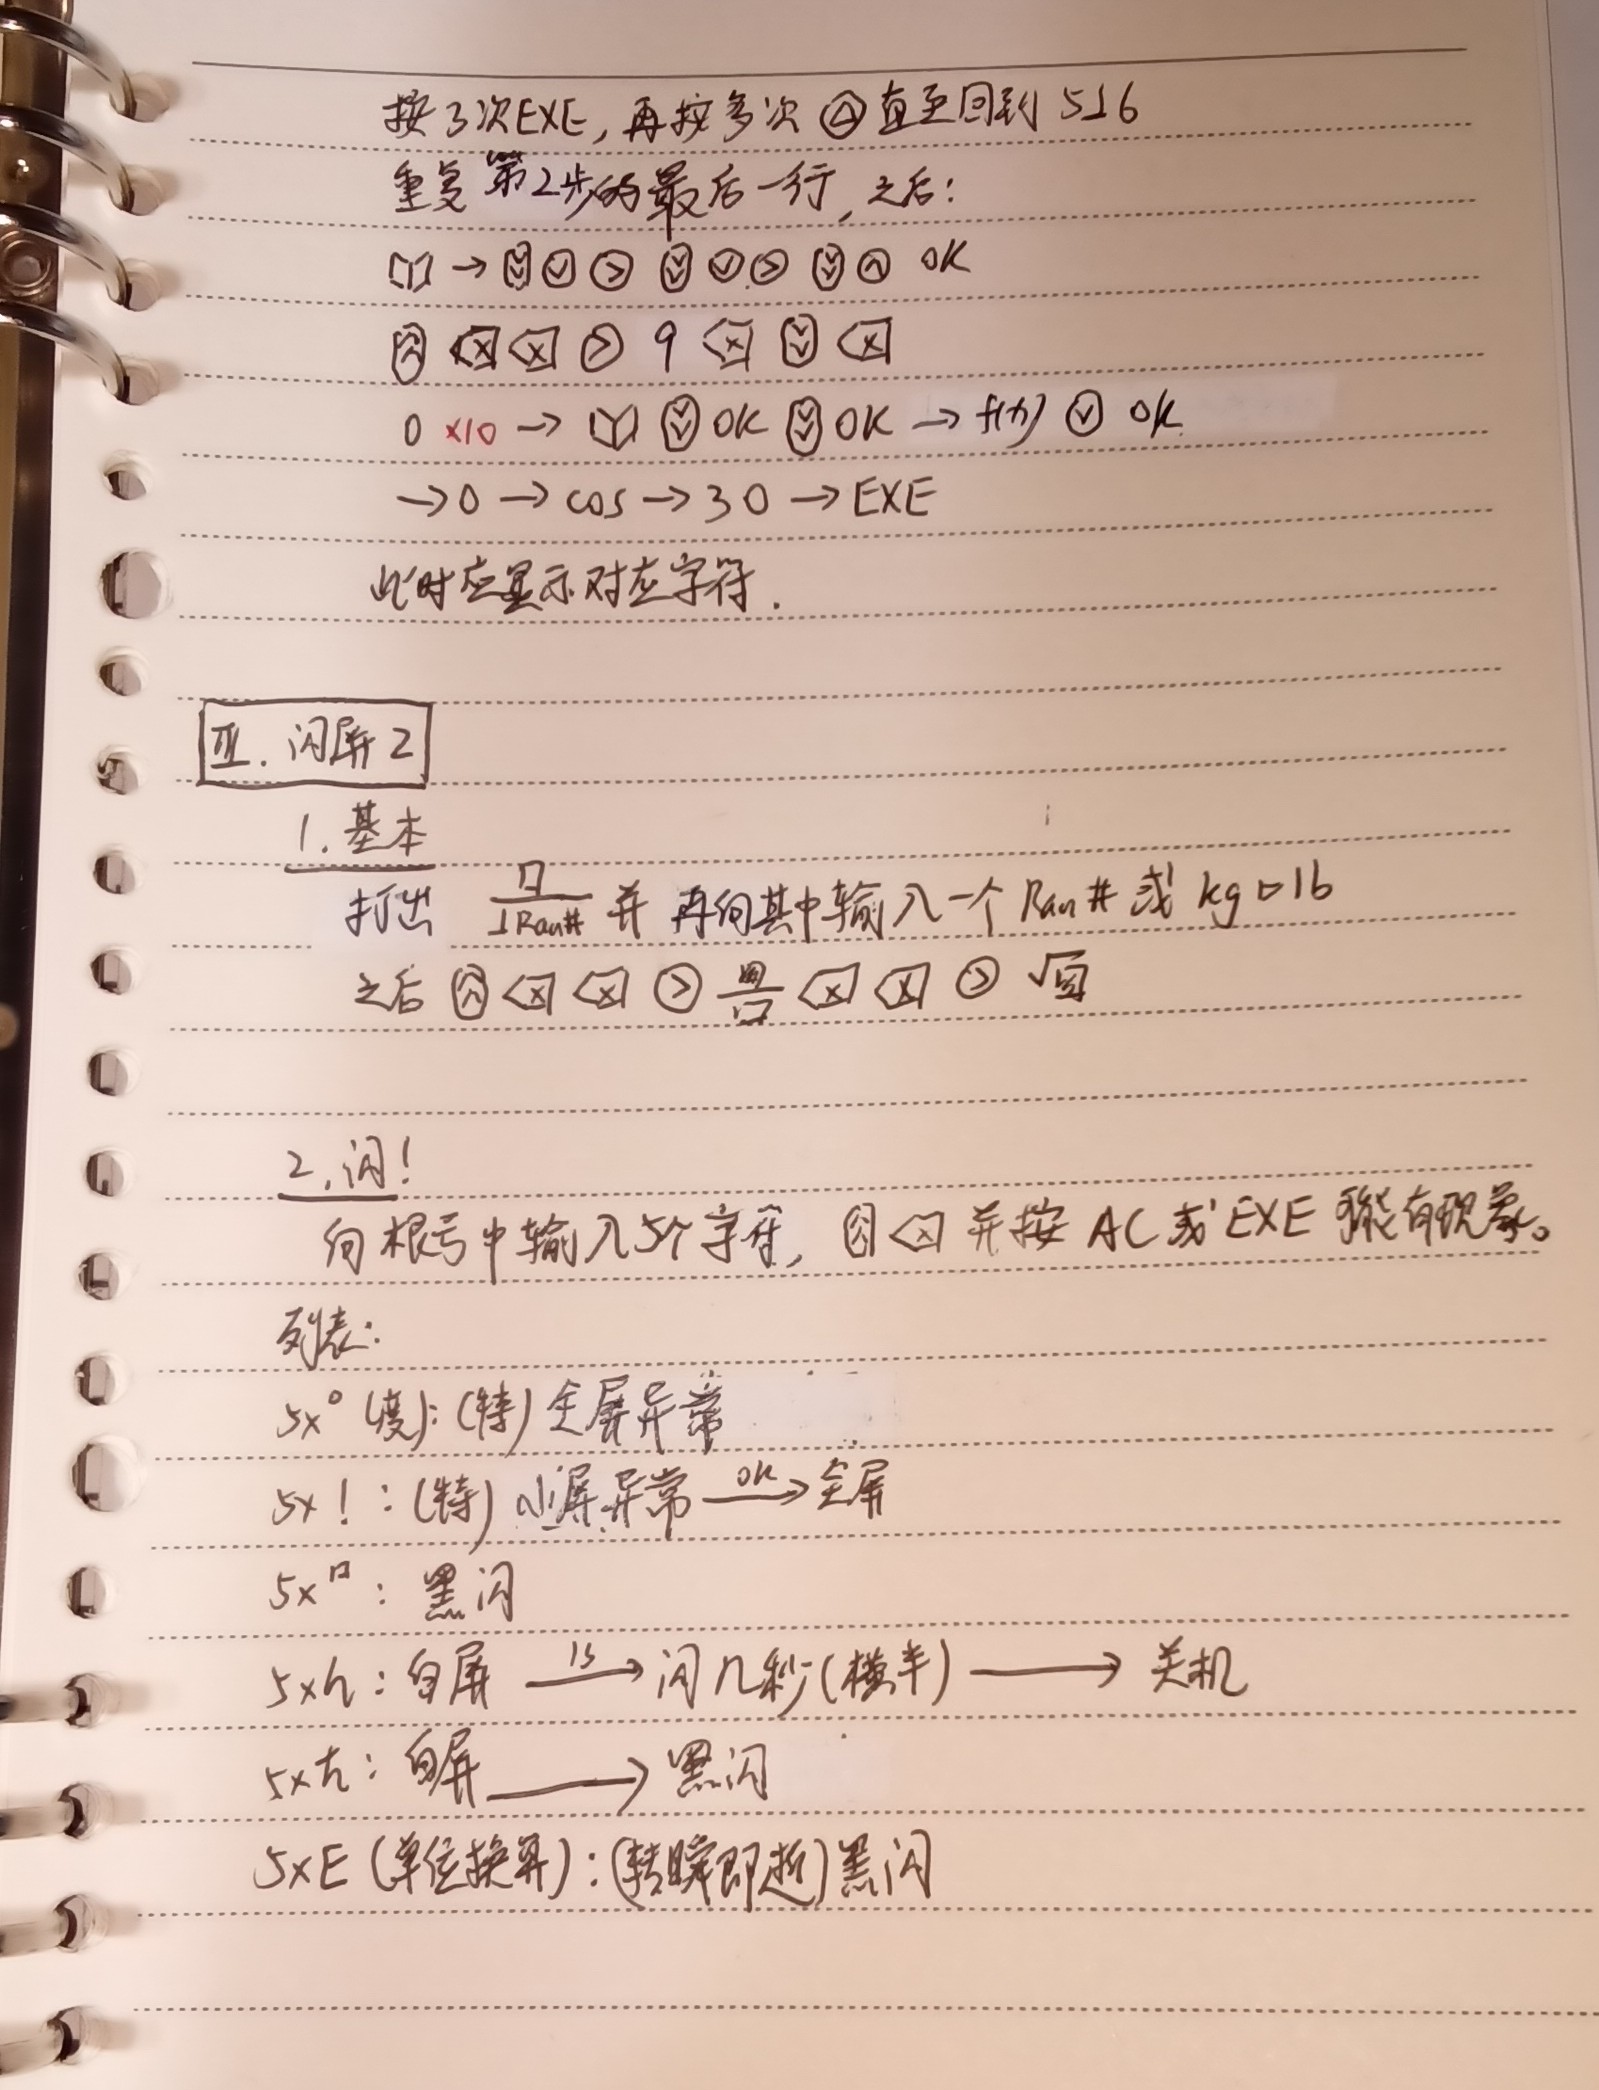 按3次EXE,再按多次 ∧ 直至回到 516
重复第2步的最后一行,之后:
→ ∨ > ∨ > ∧ OK
× × > 9 × ×
0 ×10 → OK OK → f(x) ∨ OK
→0 → cos → 30 → EXE
此时应显示对应字符.
Ⅲ. 闪屏2
1.基本
打出 □/1Ran# 并 再向其中输入一个 Ran# 或 kg▷lb
之后 × × > × × > √□
2.闪!
向根号中输入5个字符, × 并按 AC 或 EXE 可能有现象。
列表:
5×° (度): (特) 全屏异常
5×! : (特) 小屏异常 OK→ 全屏
5×□ : 黑闪
5×h : 白屏 1s→ 闪几秒(横半) → 关机
5×ħ : 白屏 → 黑闪
5×E (单位换算): (转瞬即逝)黑闪